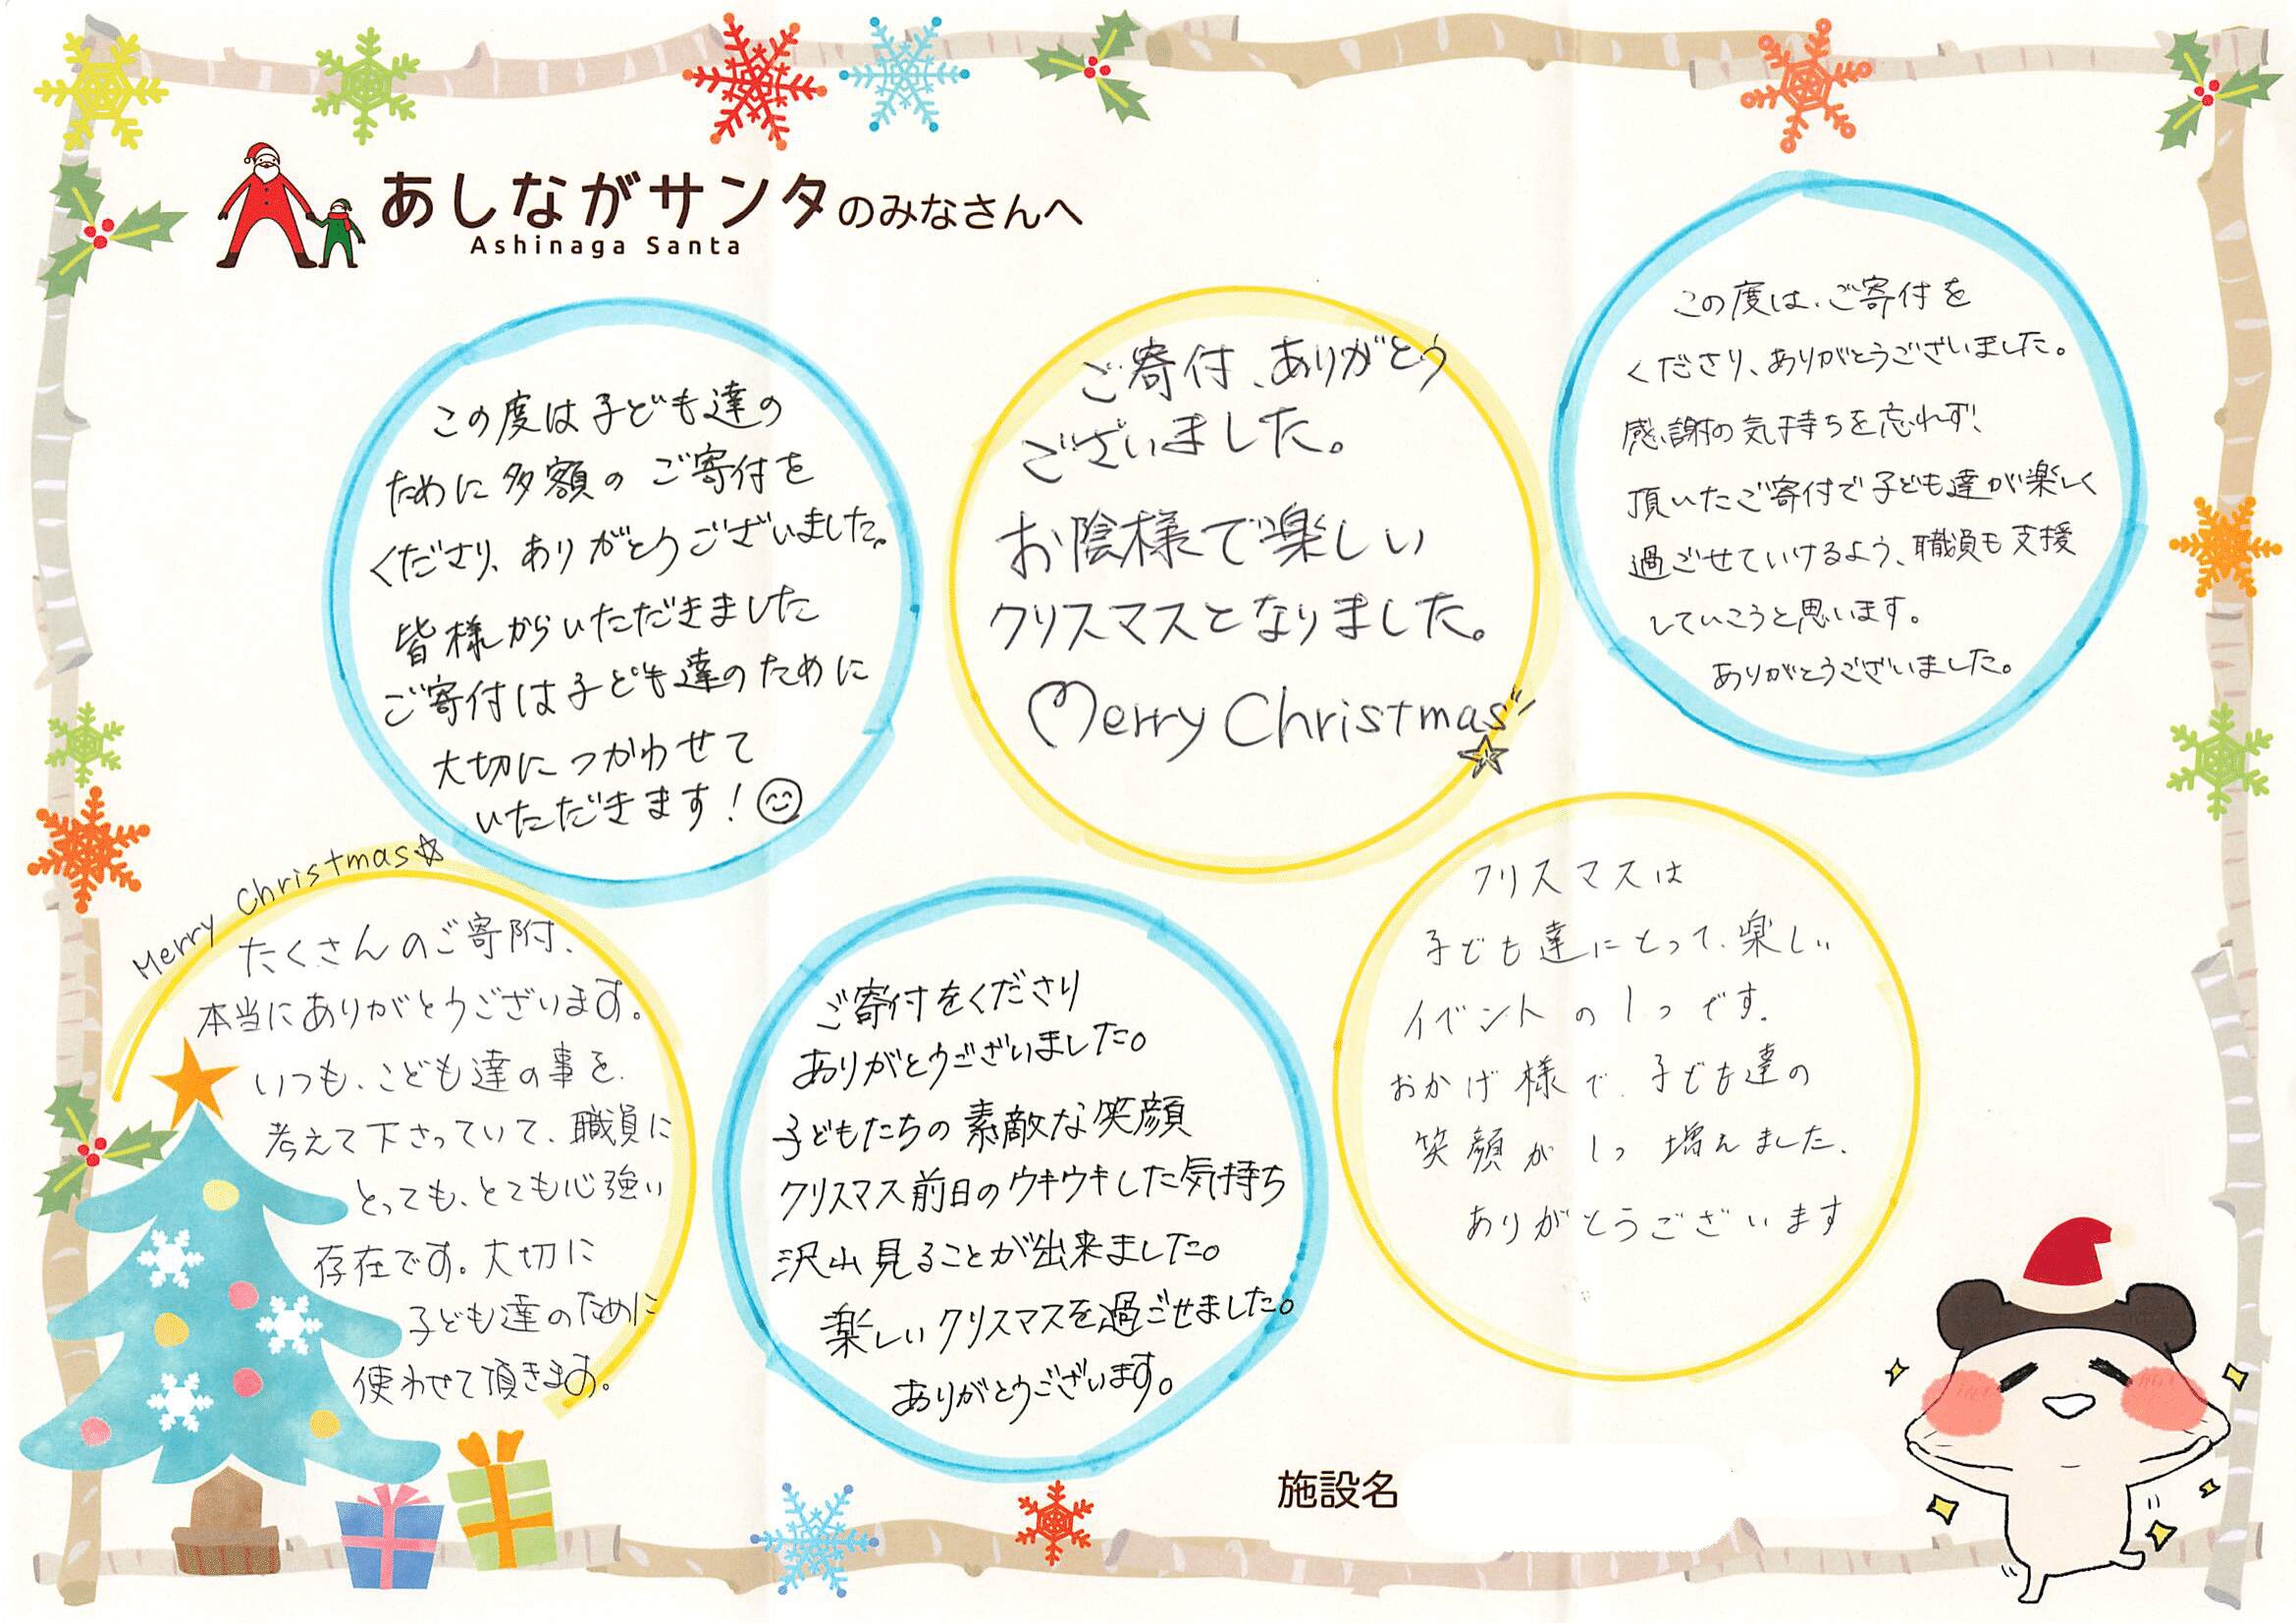 あしながサンタのみなさんへ
Ashinaga Santa
この度は子ども達の
ために多額のご寄付を
くださり、ありがとうございました。
皆様からいただきました
ご寄付は子ども達のために
大切につかわせて
いただきます!
ご寄付、ありがとう
ございました。
お陰様で楽しい
クリスマスとなりました。
Merry Christmas
この度は、ご寄付を
くださり、ありがとうございました。
感謝の気持ちを忘れず!
頂いたご寄付で子ども達が楽しく
過ごせていけるよう、職員も支援
していこうと思います。
ありがとうございました。
Merry Christmas☆
たくさんのご寄附、
本当にありがとうございます。
いつも、こども達の事を、
考えて下さっていて、職員に
とっても、とても心強い
存在です。大切に
子ども達のために
使わせて頂きます。
ご寄付をくださり
ありがとうございました。
子どもたちの素敵な笑顔
クリスマス前日のウキウキした気持ち
沢山見ることが出来ました。
楽しいクリスマスを過ごせました。
ありがとうございます。
クリスマスは
子ども達にとって、楽しい
イベントの1つです。
おかげ様で、子ども達の
笑顔が1つ増えました。
ありがとうございます
施設名